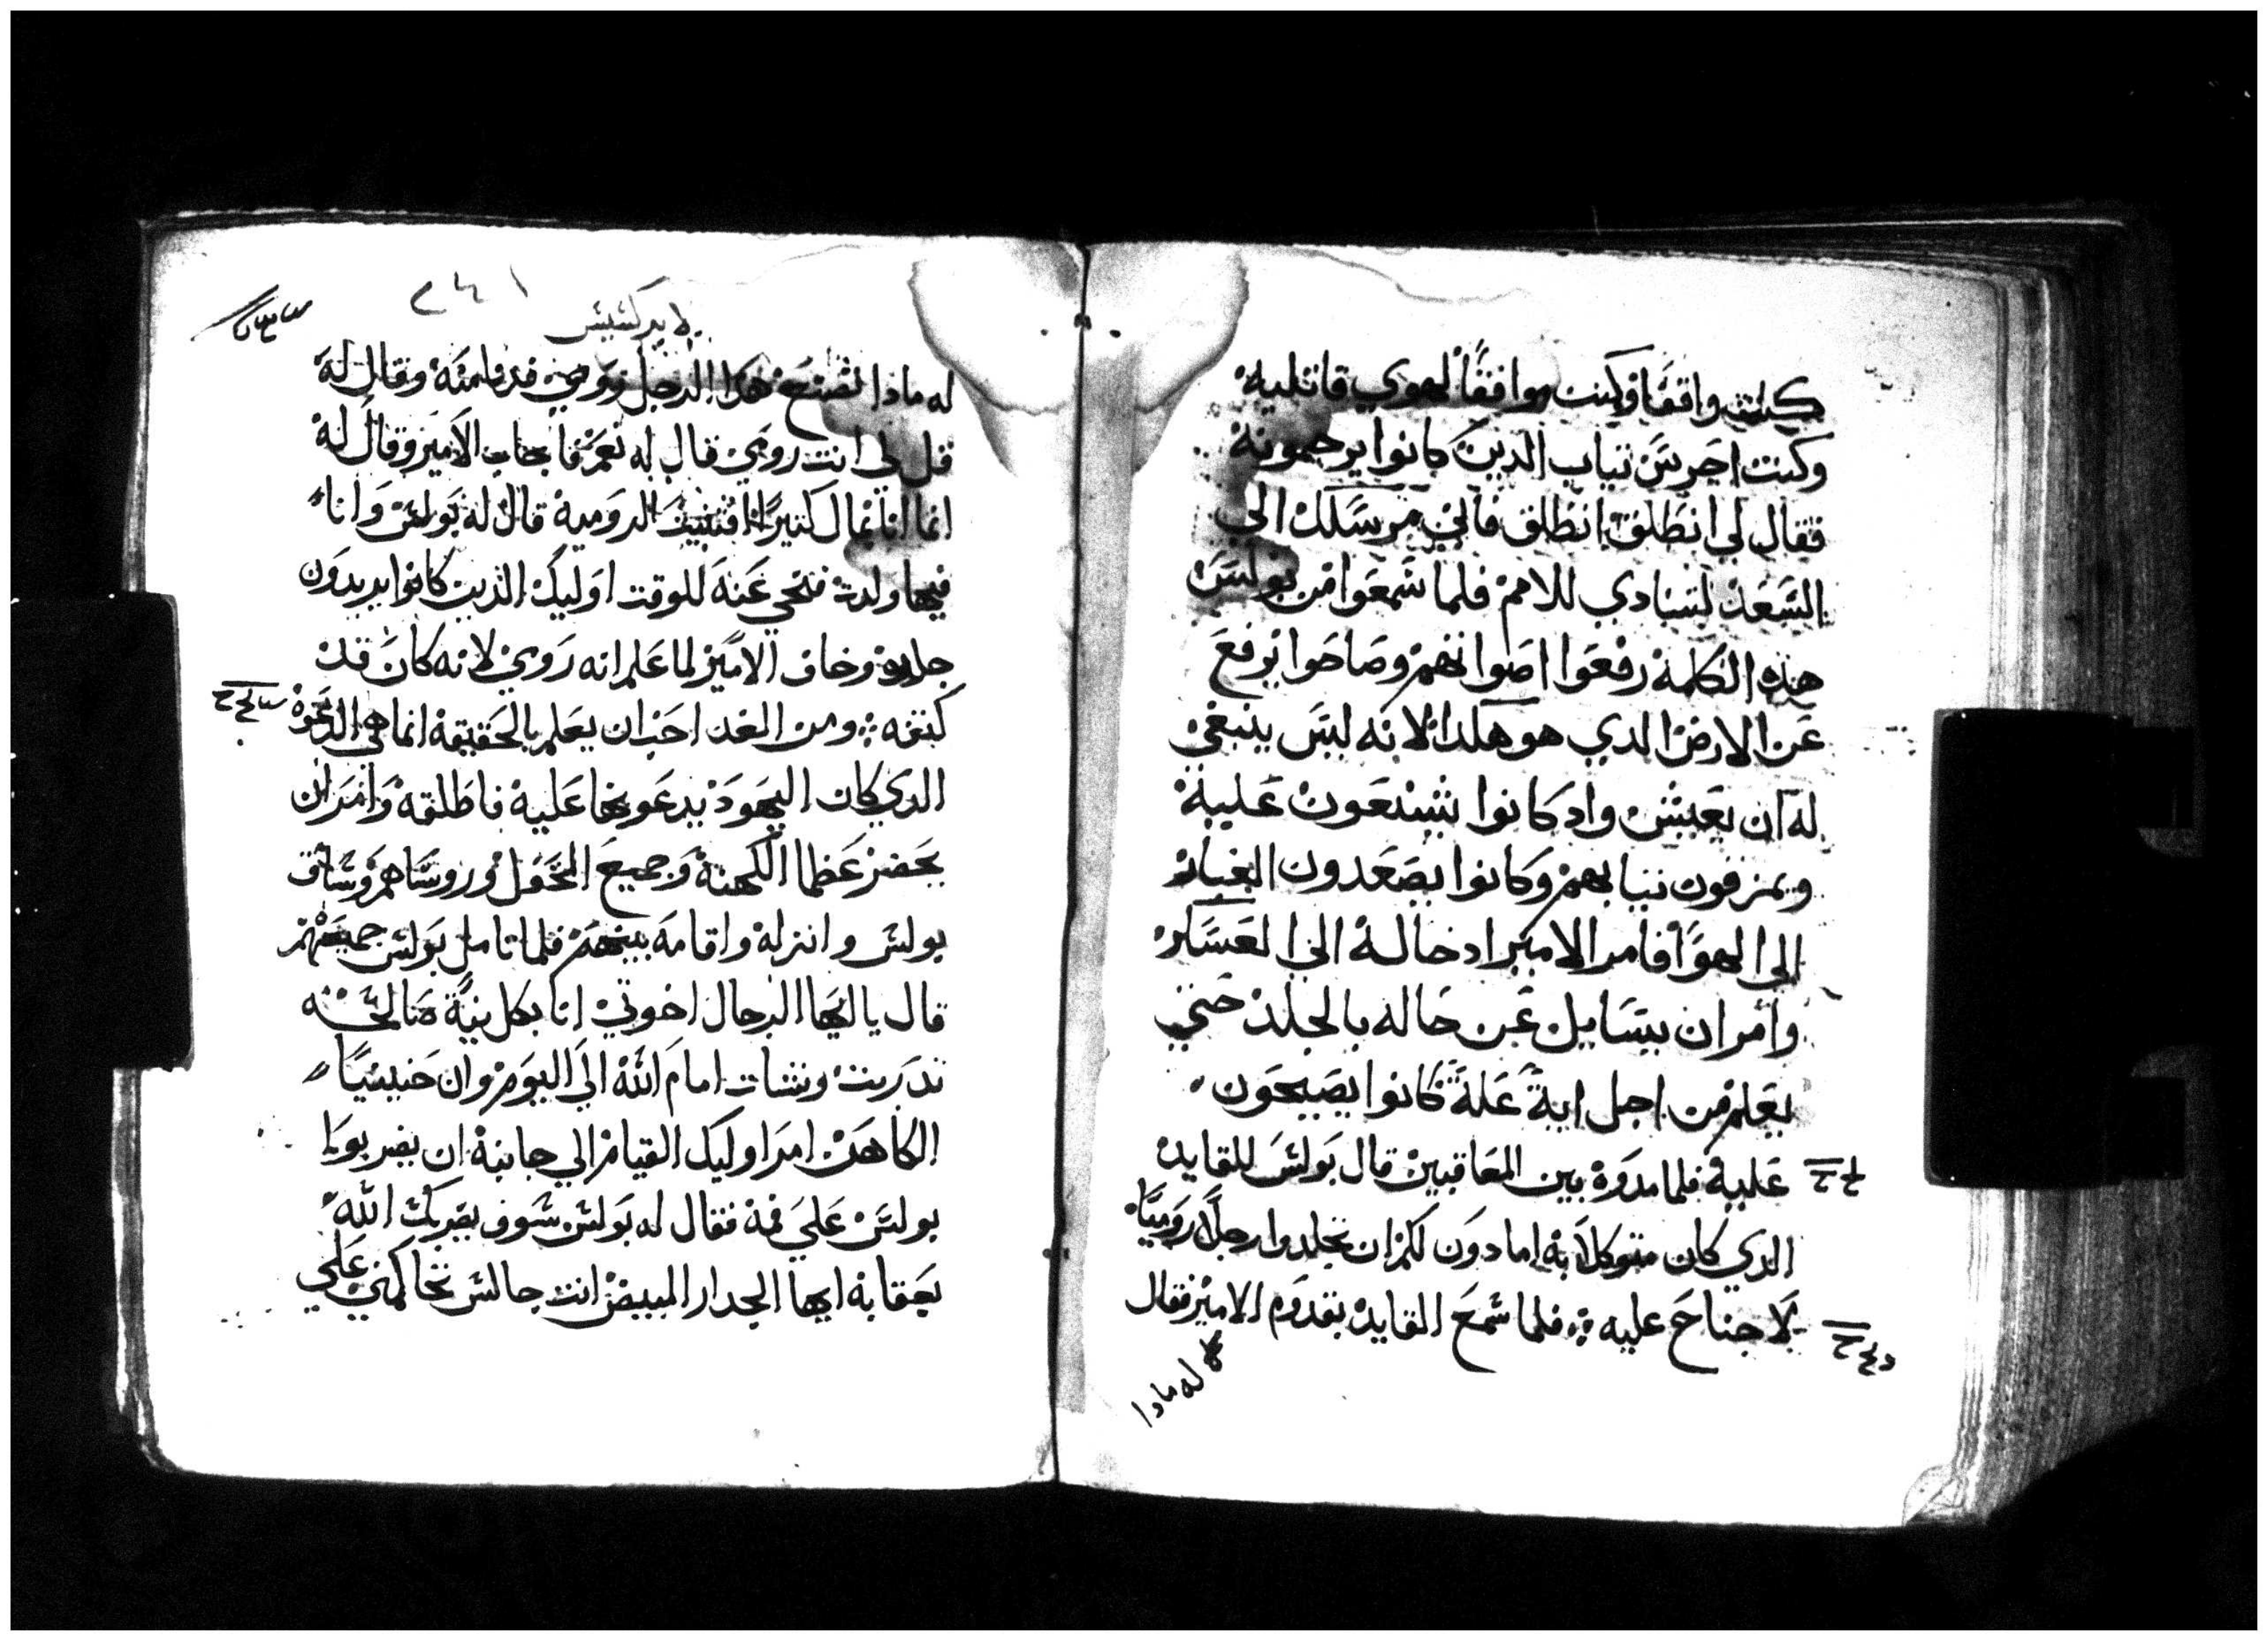 كنت واقفا وكنت موافقا لهوي قاتليه
وكنت احرس تياب الدين كانوا يرجمونه
فقال لي انطلق انطلق فاني مرسلك الي
الشعد لتنادي للامم فلما شمعوا من بولس
هذه الكلمة رفعوا اصواتهم وصاحوا يرفع
عن الارض الدي هو هكدا لانه ليس ينبغي
له ان يعيش واد كانوا يشنعون عليه
ويمزقون تيابهم وكانوا يصعدون الغبار
الي الهوا فامر الامير ادخاله الي العسكر
وامر ان يتسايل عن حاله بالجلد حتي
يعلم من اجل اية علة كانوا يصيحون
عليه فلما مدوه بين المعاقبين قال بولس للقايد
الدي كان متوكلا به امادون لكم ان تجلدوا رجلا روميا
لا جناح عليه فلما شمع القايد بقدوم الامير فقال
له مادا
لابركشيش
له مادا تصنع هدا الرجل رومي قدتامته وقال له
قل لي انت رومي قال له نعم فاجاب الامير وقال له
انما انا بمال كثيرا اقتنيت الرومية قال له بولش وانا
فيها ولدت فتنحي عنه للوقت اوليك الدين كانوا يريدون
جلده وخاف الامير لما علم انه رومي لانه كان قد
كتفه ومن الغد احب ان يعلم بالحقيقة انما هي الدعوة
الدي كان اليهود يدعونها عليه فاطلقه وامر ان
يحضر عظما الكهنة وجميع المحفل وروساهم وشاق
بولش وانزله واقامه بينهم فلما تامل بولش جميعهم
قال يا ايها الرجال اخوتي انا بكل نية صالحه
تدربت ونشات امام الله الي اليوم وان حنينيا
الكاهن امر اوليك القيام الي جانبه ان يضربوا
بولس علي فمه فقال له بولش شوف يضربك الله
بعقابه ايها الجدار المبيض انت جالش تحاكمني علي